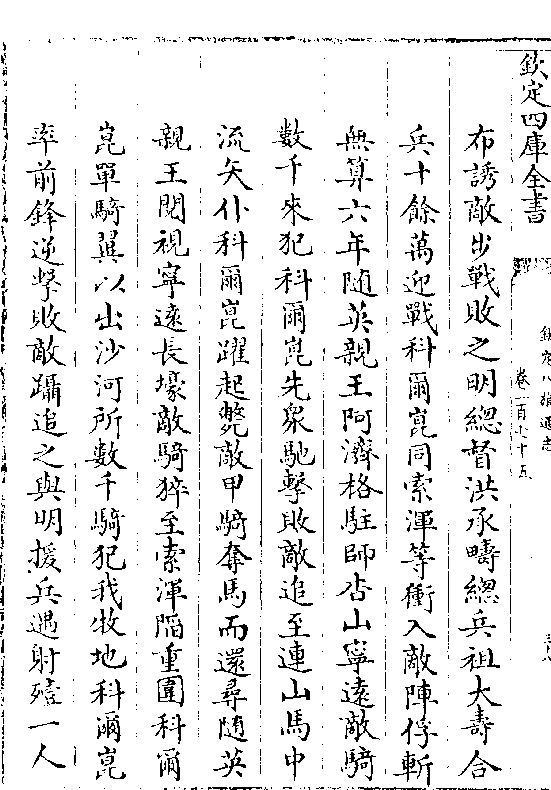 欽定四庫全書
欽定八旗通志
卷一百七十五
布誘敵出戰敗之明總督洪承疇總兵祖大壽合
兵十餘萬迎戰科爾崑同索渾等衝入敵陣俘斬
無算六年隨英親王阿濟格駐師杏山寧遠敵騎
數千來犯科爾崑先衆馳擊敗敵追至連山馬中
流矢仆科爾崑躍起斃敵甲騎奪馬而還尋隨英
親王閱視寧遠長壕敵騎猝至索渾陷重圍科爾
崑單騎翼以出沙河所數千騎犯我牧地科爾崑
率前鋒逆擊敗敵躡追之與明援兵遇射殪一人